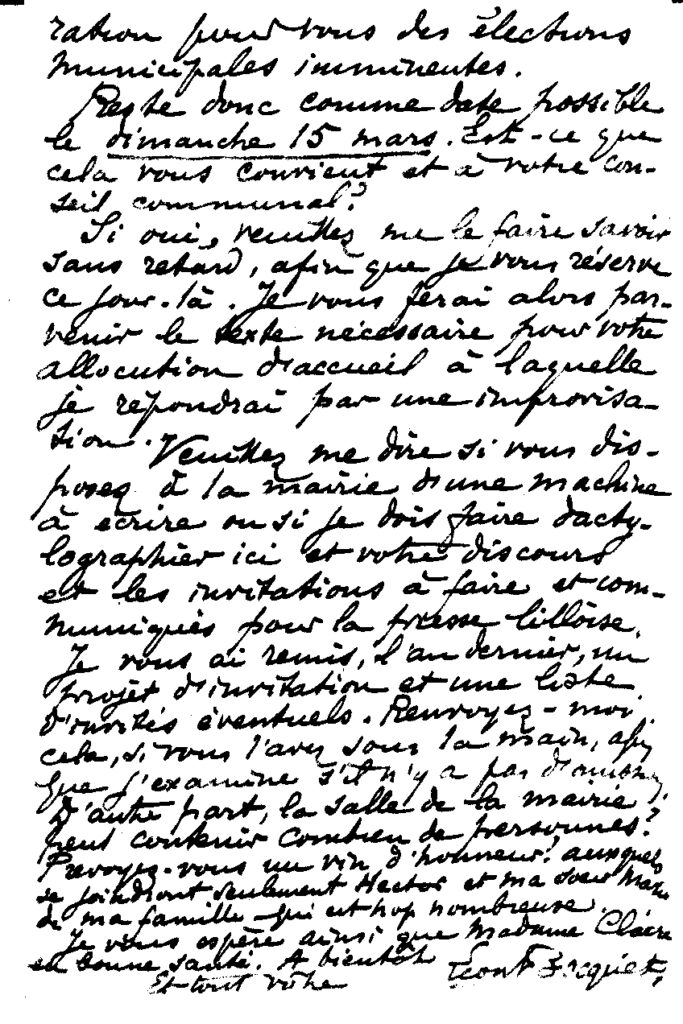 ration pour vous des élections
municipales imminentes.
Reste donc comme date possible
le dimanche 15 mars. Est-ce que
cela vous convient et à votre con-
seil communal?
Si oui, veuillez me le faire savoir
sans retard, afin que je vous réserve
ce jour-là. Je vous ferai alors par-
venir le texte nécessaire pour votre
allocution d'accueil à laquelle
je répondrai par une improvisa-
tion. Veuillez me dire si vous dis-
posez à la mairie d'une machine
à écrire ou si je dois faire dacty-
lographier ici et votre discours
et les invitations à faire et com-
muniqués pour la presse lilloise.
Je vous ai remis, l'an dernier, un
projet d'invitation et une liste
d'invités éventuels. Renvoyez-moi
cela, si vous l'avez sous la main, afin
que j'examine s'il n'y a pas d'omission.
D'autre part, la salle de la mairie
peut contenir combien de personnes?
Prévoyez-vous un vin d'honneur? auxquels
se joindront seulement Hector et ma soeur
de ma famille qui est trop nombreuse.
Je vous espère ainsi que Madame
en bonne santé. A bientôt
Et tout vôtre